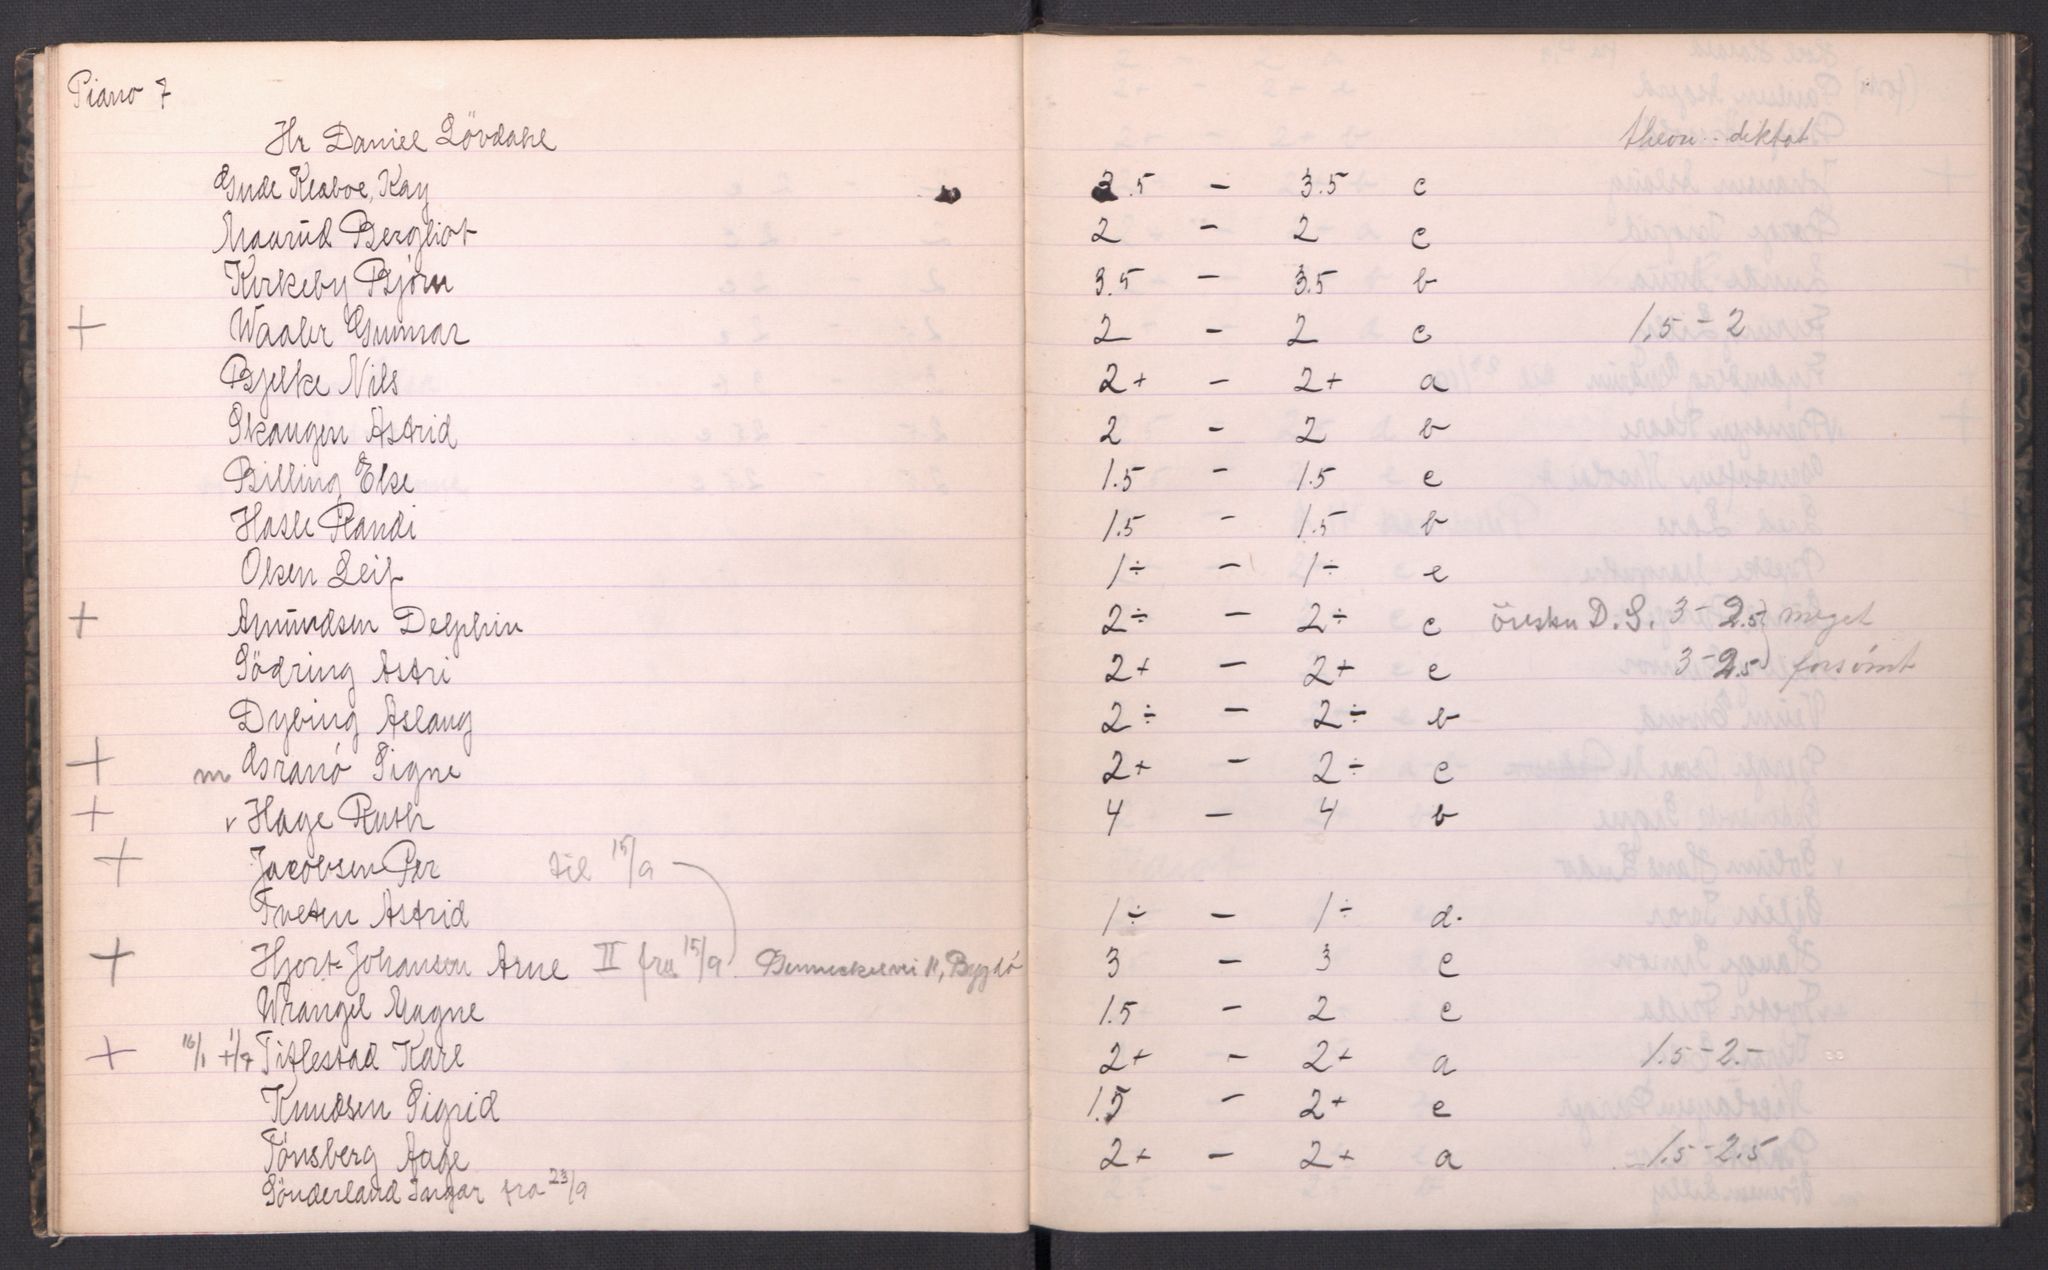 Piano 7
Hr Daniel Lövdahl
theori - diktat
Gude Kesboe, Kay 3.5 - 3.5 c
Maurud Bergliot 2 - 2 c
Kirkeby Björn 3.5 - 3.5 b
+ Waaler Gunnar 2 - 2 c 1.5 - 2
Bjelke Nils 2+ - 2+ a
Skaugen Astrid 2 - 2 b
Billing Else 1.5 - 1.5 c
Hasle Randi 1.5 - 1.5 b
Olsen Leif 1÷ - 1÷ c
+ Amundsen Delphin 2÷ - 2÷ c D. S. 3 - 2.5 meget
Södring Astri 2+ - 2+ c 3 - 2.5 forsömt
Dybing Aslaug 2÷ - 2÷ b
+ m Signe 2+ - 2÷ c
+ v Hage Ruth 4 - 4 b
+ Jacobsen Per til 15/9
Tveten Astrid 1÷ - 1÷ d.
+ Hjort-Johansen Arne II fra 15/9. 11, Bygdö 3 - 3 c
Wrangel Magne 1.5 - 2 c
+ 16/1 +1/4 Titlestad Karl 2+ - 2+ a 1.5 - 2.-
Knudsen Sigrid 1.5 - 2+ c
Tönsberg Aage 2+ - 2+ a 1.5 - 2.5
Sönderland Ingar fra 23/9